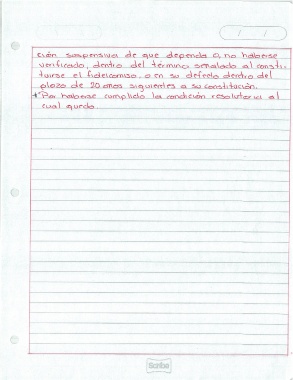 ción suspensiva de que dependa o no haberse
verificado, dentro del termino señalado al consti-
tuirse el fideicomiso, o en su defecto dentro del
plazo de 20 años siguientes a su constitución.
4° Por haberse cumplido la condición resolutoria al
cual quedo
Scribe